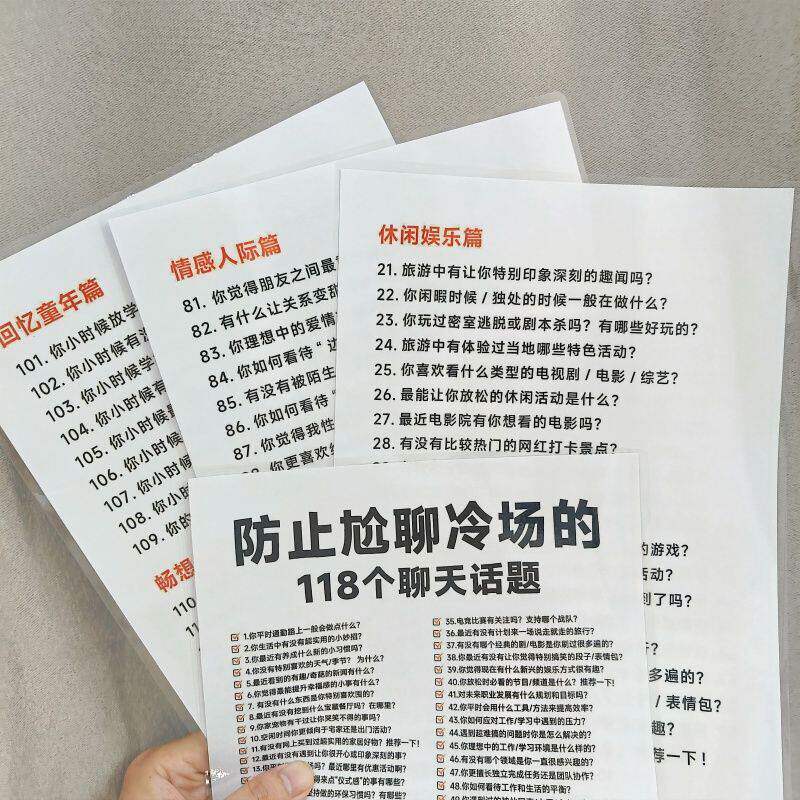 回忆童年篇
101. 你小时候放学
102. 你小时候有没
103. 你小时候学
104. 你小时候有
105. 你小时候
106. 你小时候
107. 你小时
108. 你小时
109. 你的
畅想
110
111
11
情感人际篇
81. 你觉得朋友之间最
82. 有什么让关系变甜
83. 你理想中的爱情
84. 你如何看待“边
85. 有没有被陌生
86. 你如何看待“
87. 你觉得我性
你更喜欢
休闲娱乐篇
21. 旅游中有让你特别印象深刻的趣闻吗?
22. 你闲暇时候 / 独处的时候一般在做什么?
23. 你玩过密室逃脱或剧本杀吗? 有哪些好玩的?
24. 旅游中有体验过当地哪些特色活动?
25. 你喜欢看什么类型的电视剧 / 电影 / 综艺?
26. 最能让你放松的休闲活动是什么?
27. 最近电影院有你想看的电影吗?
28. 有没有比较热门的网红打卡景点?
的游戏?
活动?
到了吗?
开?
多遍的?
/ 表情包?
趣?
荐一下!
防止尬聊冷场的
118个聊天话题
1.你平时通勤路上一般会做点什么?
2.你生活中有没有超实用的小妙招?
3.你最近有养成什么新的小习惯吗?
4.你没有特别喜欢的天气/季节? 为什么?
5.最近看到的有趣/奇葩的新闻有什么?
6.你觉得最能提升幸福感的小事有什么?
7. 有没有什么东西是你特别喜欢囤的?
8.最近有没有挖到什么宝藏餐厅吗? 在哪里?
9.你家宠物有干过让你哭笑不得的事吗?
10.空闲时间你更倾向于宅家还是出门活动?
11.有没有网上买到过超实用的家居好物? 推荐一下!
12.最近有没有遇到让你很开心或印象深刻的事?
13.你平
吗? 最近哪里有优惠活动啊?
得来点“仪式感”的事有哪些?
持做的环保习惯吗? 有哪些?
35.电竞比赛有关注吗? 支持哪个战队?
36.最近有没有计划来一场说走就走的旅行?
37.有没有哪个经典的剧/电影是你刷过很多遍的?
38.最近有没有让你觉得特别搞笑的段子/表情包?
39.你觉得现在有什么新兴的娱乐方式很有趣?
40.你放松时必看的节目/频道是什么? 推荐一下!
41.对未来职业发展有什么规划和目标吗?
42.你平时会用什么工具/方法来提高效率?
43.你如何应对工作/学习中遇到的压力?
44.遇到超难搞的问题时你是怎么解决的?
45.你理想中的工作/学习环境是什么样的?
46.有没有哪个领域是你一直很感兴趣的?
47.你更擅长独立完成任务还是团队协作?
48.你如何看待工作和生活的平衡?